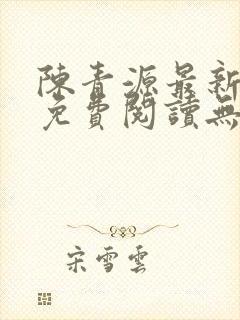 陳青源最新
免費閱讀無
宋雪雲